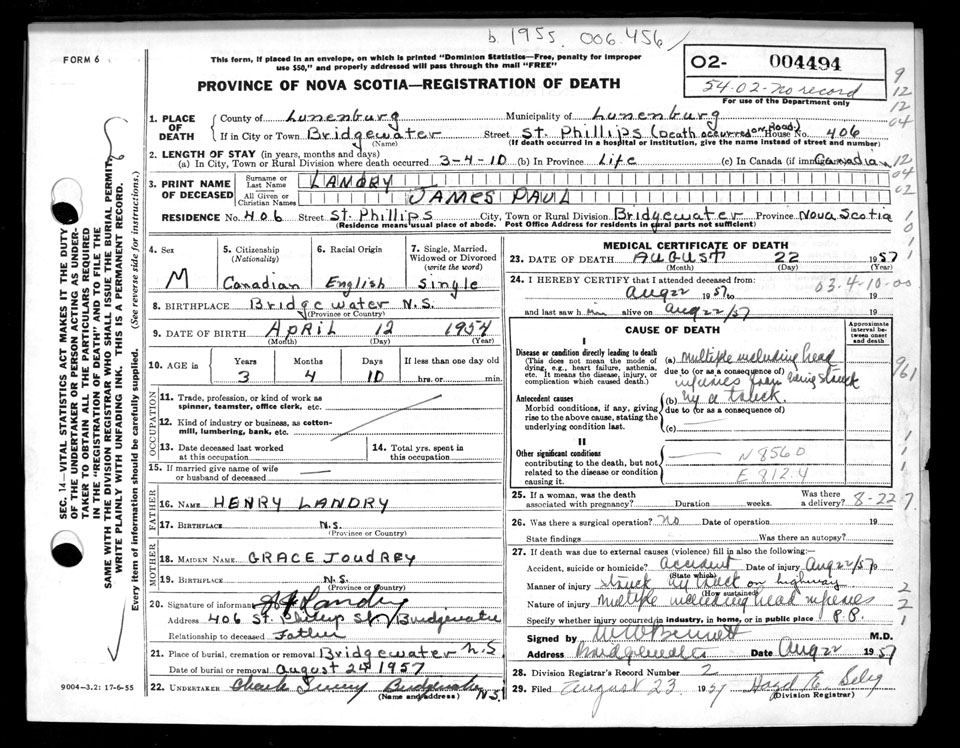 b. 1955. 006.456/
FORM 6
This form, if placed in an envelope, on which is printed "Dominion Statistics—Free, penalty for improper
use $50," and properly addressed will pass through the mail "FREE"
O2- 004494
54-02-no record
For use of the Department only
PROVINCE OF NOVA SCOTIA—REGISTRATION OF DEATH
1. PLACE OF DEATH
County of Lunenburg Municipality of Lunenburg
If in City or Town Bridgewater Street St. Phillips (Death occurred on Road.) House No. 406
(Name) (If death occurred in a hospital or institution, give the name instead of street and number)
2. LENGTH OF STAY (in years, months and days)
(a) In City, Town or Rural Division where death occurred 3-4-10 (b) In Province Life (c) In Canada (if imm Canadian
3. PRINT NAME OF DECEASED
Surname or Last Name LANDRY
All Given or Christian Names JAMES PAUL
RESIDENCE No. 406 Street St. Phillips City, Town or Rural Division Bridgewater Province Nova Scotia
(Residence means usual place of abode. Post Office Address for residents in rural parts not sufficient)
4. Sex M
5. Citizenship (Nationality) Canadian
6. Racial Origin English
7. Single, Married, Widowed or Divorced (write the word) Single
8. BIRTHPLACE Bridgewater N.S.
(Province or Country)
9. DATE OF BIRTH April 12 1954
(Month) (Day) (Year)
10. AGE in Years 3 Months 4 Days 10 If less than one day old hrs. or min.
OCCUPATION
11. Trade, profession, or kind of work as
spinner, teamster, office clerk, etc.
12. Kind of industry or business, as cotton-
mill, lumbering, bank, etc.
13. Date deceased last worked
at this occupation
14. Total yrs. spent in
this occupation
15. If married give name of wife
or husband of deceased —
FATHER
16. NAME HENRY LANDRY
17. BIRTHPLACE N.S.
(Province or Country)
MOTHER
18. MAIDEN NAME GRACE JOUDREY
19. BIRTHPLACE N.S.
(Province or Country)
20. Signature of informant Landry
Address 406 St. Phillip St Bridgewater
Relationship to deceased Father
21. Place of burial, cremation or removal Bridgewater N.S.
Date of burial or removal August 24 1957
22. UNDERTAKER Bridgewater N.S.
(Name and address)
9004-3.2: 17-6-55
MEDICAL CERTIFICATE OF DEATH
23. DATE OF DEATH AUGUST 22 1957
(Month) (Day) (Year)
24. I HEREBY CERTIFY that I attended deceased from
Aug 22 1957 to 19
03-4-10-00
and last saw him alive on Aug 22/57 19
CAUSE OF DEATH
Approximate interval between onset and death
I
Disease or condition directly leading to death
(This does not mean the mode of
dying, e.g., heart failure, asthenia,
etc. It means the disease, injury, or
complication which caused death.)
(a) Multiple including head
due to (or as a consequence of)
injuries from being struck
Antecedent causes
Morbid conditions, if any, giving
rise to the above cause, stating the
underlying condition last.
(b) by a truck.
due to (or as a consequence of)
(c)
II
Other significant conditions
contributing to the death, but not
related to the disease or condition
causing it.
N 8560
E 812.4
25. If a woman, was the death
associated with pregnancy? Duration weeks. Was there a delivery?
8-22-7
26. Was there a surgical operation? No Date of operation 19
State findings Was there an autopsy?
27. If death was due to external causes (violence) fill in also the following:—
Accident, suicide or homicide? Accident Date of injury Aug 22/57 19
(State which)
Manner of injury struck by truck on highway
(How sustained)
Nature of injury Multiple including head injuries
Specify whether injury occurred in industry, in home, or in public place P.P.
Signed by Bennett M.D.
Address Bridgewater Date Aug 22 1957
28. Division Registrar's Record Number 2
29. Filed August 23 1957
(Division Registrar)
9
12
12
04
12
04
02
1
0
1
1
961
1
1
1
2
2
1
SEC. 14—VITAL STATISTICS ACT MAKES IT THE DUTY
OF THE UNDERTAKER OR PERSON ACTING AS UNDER-
TAKER TO OBTAIN ALL THE PARTICULARS REQUIRED
IN THE "REGISTRATION OF DEATH" AND TO FILE THE
SAME WITH THE DIVISION REGISTRAR WHO SHALL ISSUE THE BURIAL PERMIT.
WRITE PLAINLY WITH UNFADING INK. THIS IS A PERMANENT RECORD.
Every item of information should be carefully supplied. (See reverse side for instructions.)